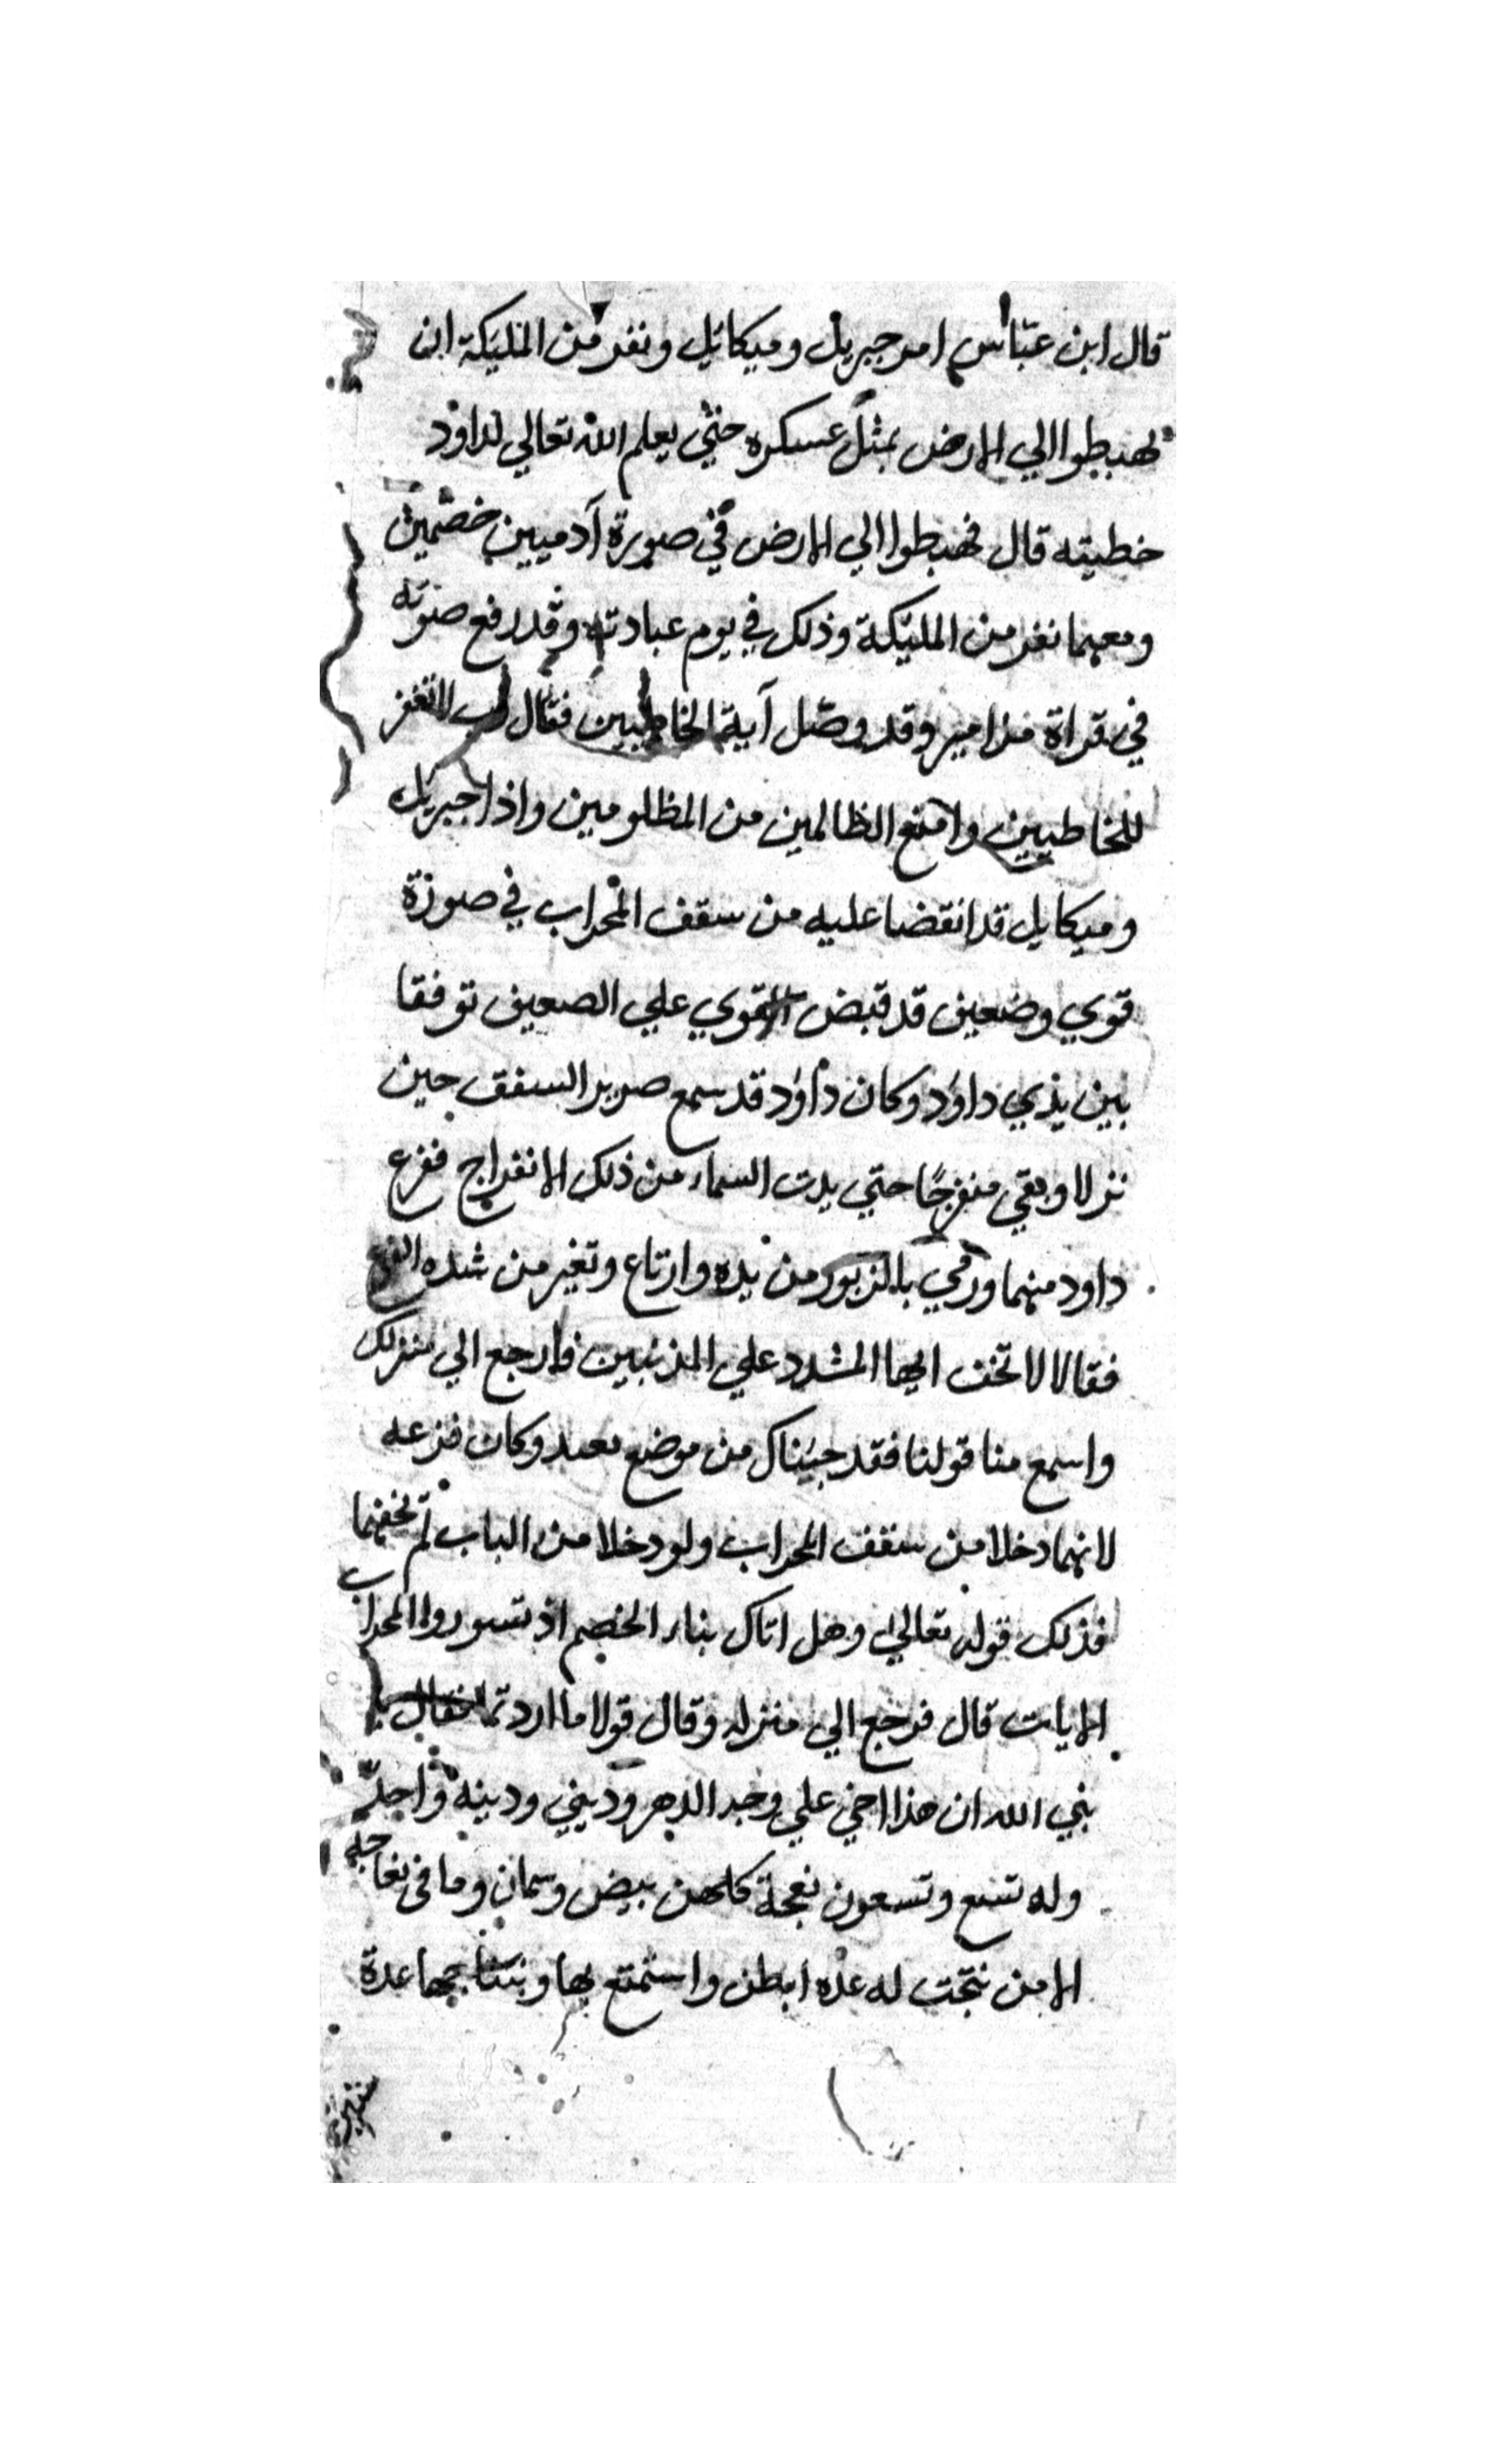 قال ابن عباس امر جبريل وميكائيل ونفر من المليكة ان
يهبطوا الي الارض بمثل عسكره حتي يعلم الله تعالي لداود
خطيته قال فهبطوا الي الارض في صورة آدميين خصمين
ومعهما نفر من المليكة وذلك في يوم عبادته وقد رفع صوته
في قراة مزامير وقد وصل آية الخاطيين فقال رب لا تغفر
للخاطيين وامنع الظالمين من المظلومين واذا جبريل
وميكايل قد انقضا عليه من سقف المحراب في صورة
قوي وضعيف قد قبض القوي علي الصعيف توفقا
بين يدي داود وكان داود قد سمع صرير السقف حين
نزلا وبقي منفرجًا حتي بدت السماء من ذلك الانفراج ففزع
داود منهما ورمي بالزبور من يده وارتاع وتغير من شده الفزع
فقالا لا تخف ايها المشدد علي المذنبين فارجع الي منزلك
واسمع منا قولنا فقد جيناك من موضع بعيد وكان فزعه
لانهما دخلا من سقف المحراب ولو دخلا من الباب لم يخفهما
فذلك قوله تعالي وهل اتاك بناء الخصم اذ تسوروا المحراب
الايات قال فرجع الي منزله وقال قولا ما اردتما فقال يا
نبي الله ان هذا اخي علي وجه الدهر وديني ودينه واحد
وله تسع وتسعون نعجة كلهن بيض وسمان وما في نعاجه
الا من نتجت له عده ابطن واستمتع بها وبنتاجها عدة